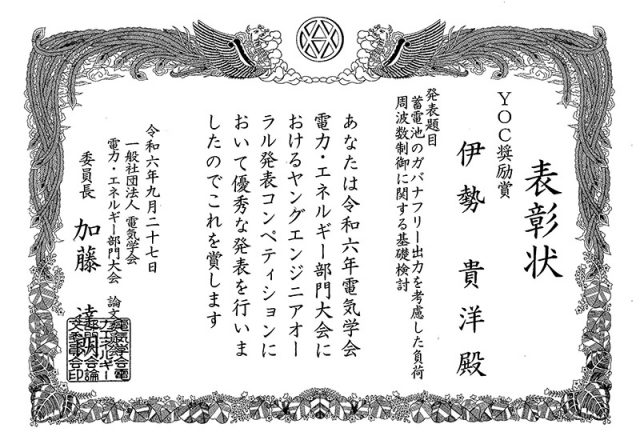 表彰状
YOC奨励賞
伊勢 貴洋 殿
発表題目
蓄電池のガバナフリー出力を考慮した負荷
周波数制御に関する基礎検討
あなたは令和六年電気学会
電力・エネルギー部門大会に
おけるヤングエンジニアオー
ラル発表コンペティションに
おいて優秀な発表を行いま
したのでこれを賞します
令和六年九月二十七日
一般社団法人 電気学会
電力・エネルギー部門大会 論文
委員長 加藤 達朗